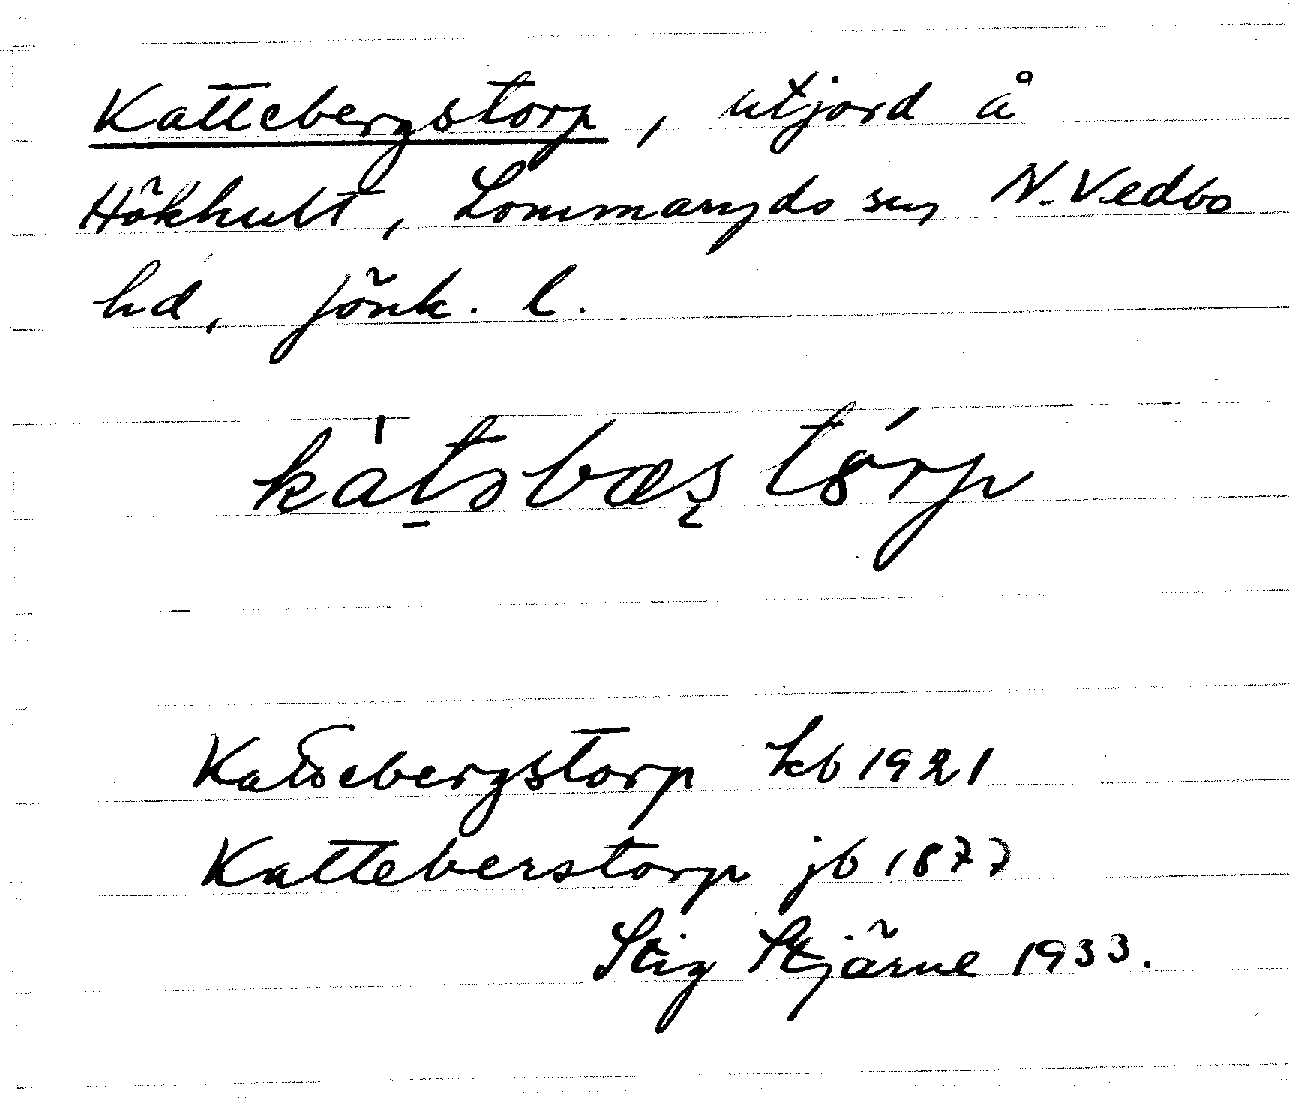 Kattebergstorp, utjord å
Hökhult, Lommaryds sn, N. Vedbo
hd, Jönk. l.
kàt̠əbæʂ tórp
Kattebergstorp kb 1921
Katteberstorp jb 1877
Stig Stjärne 1933.